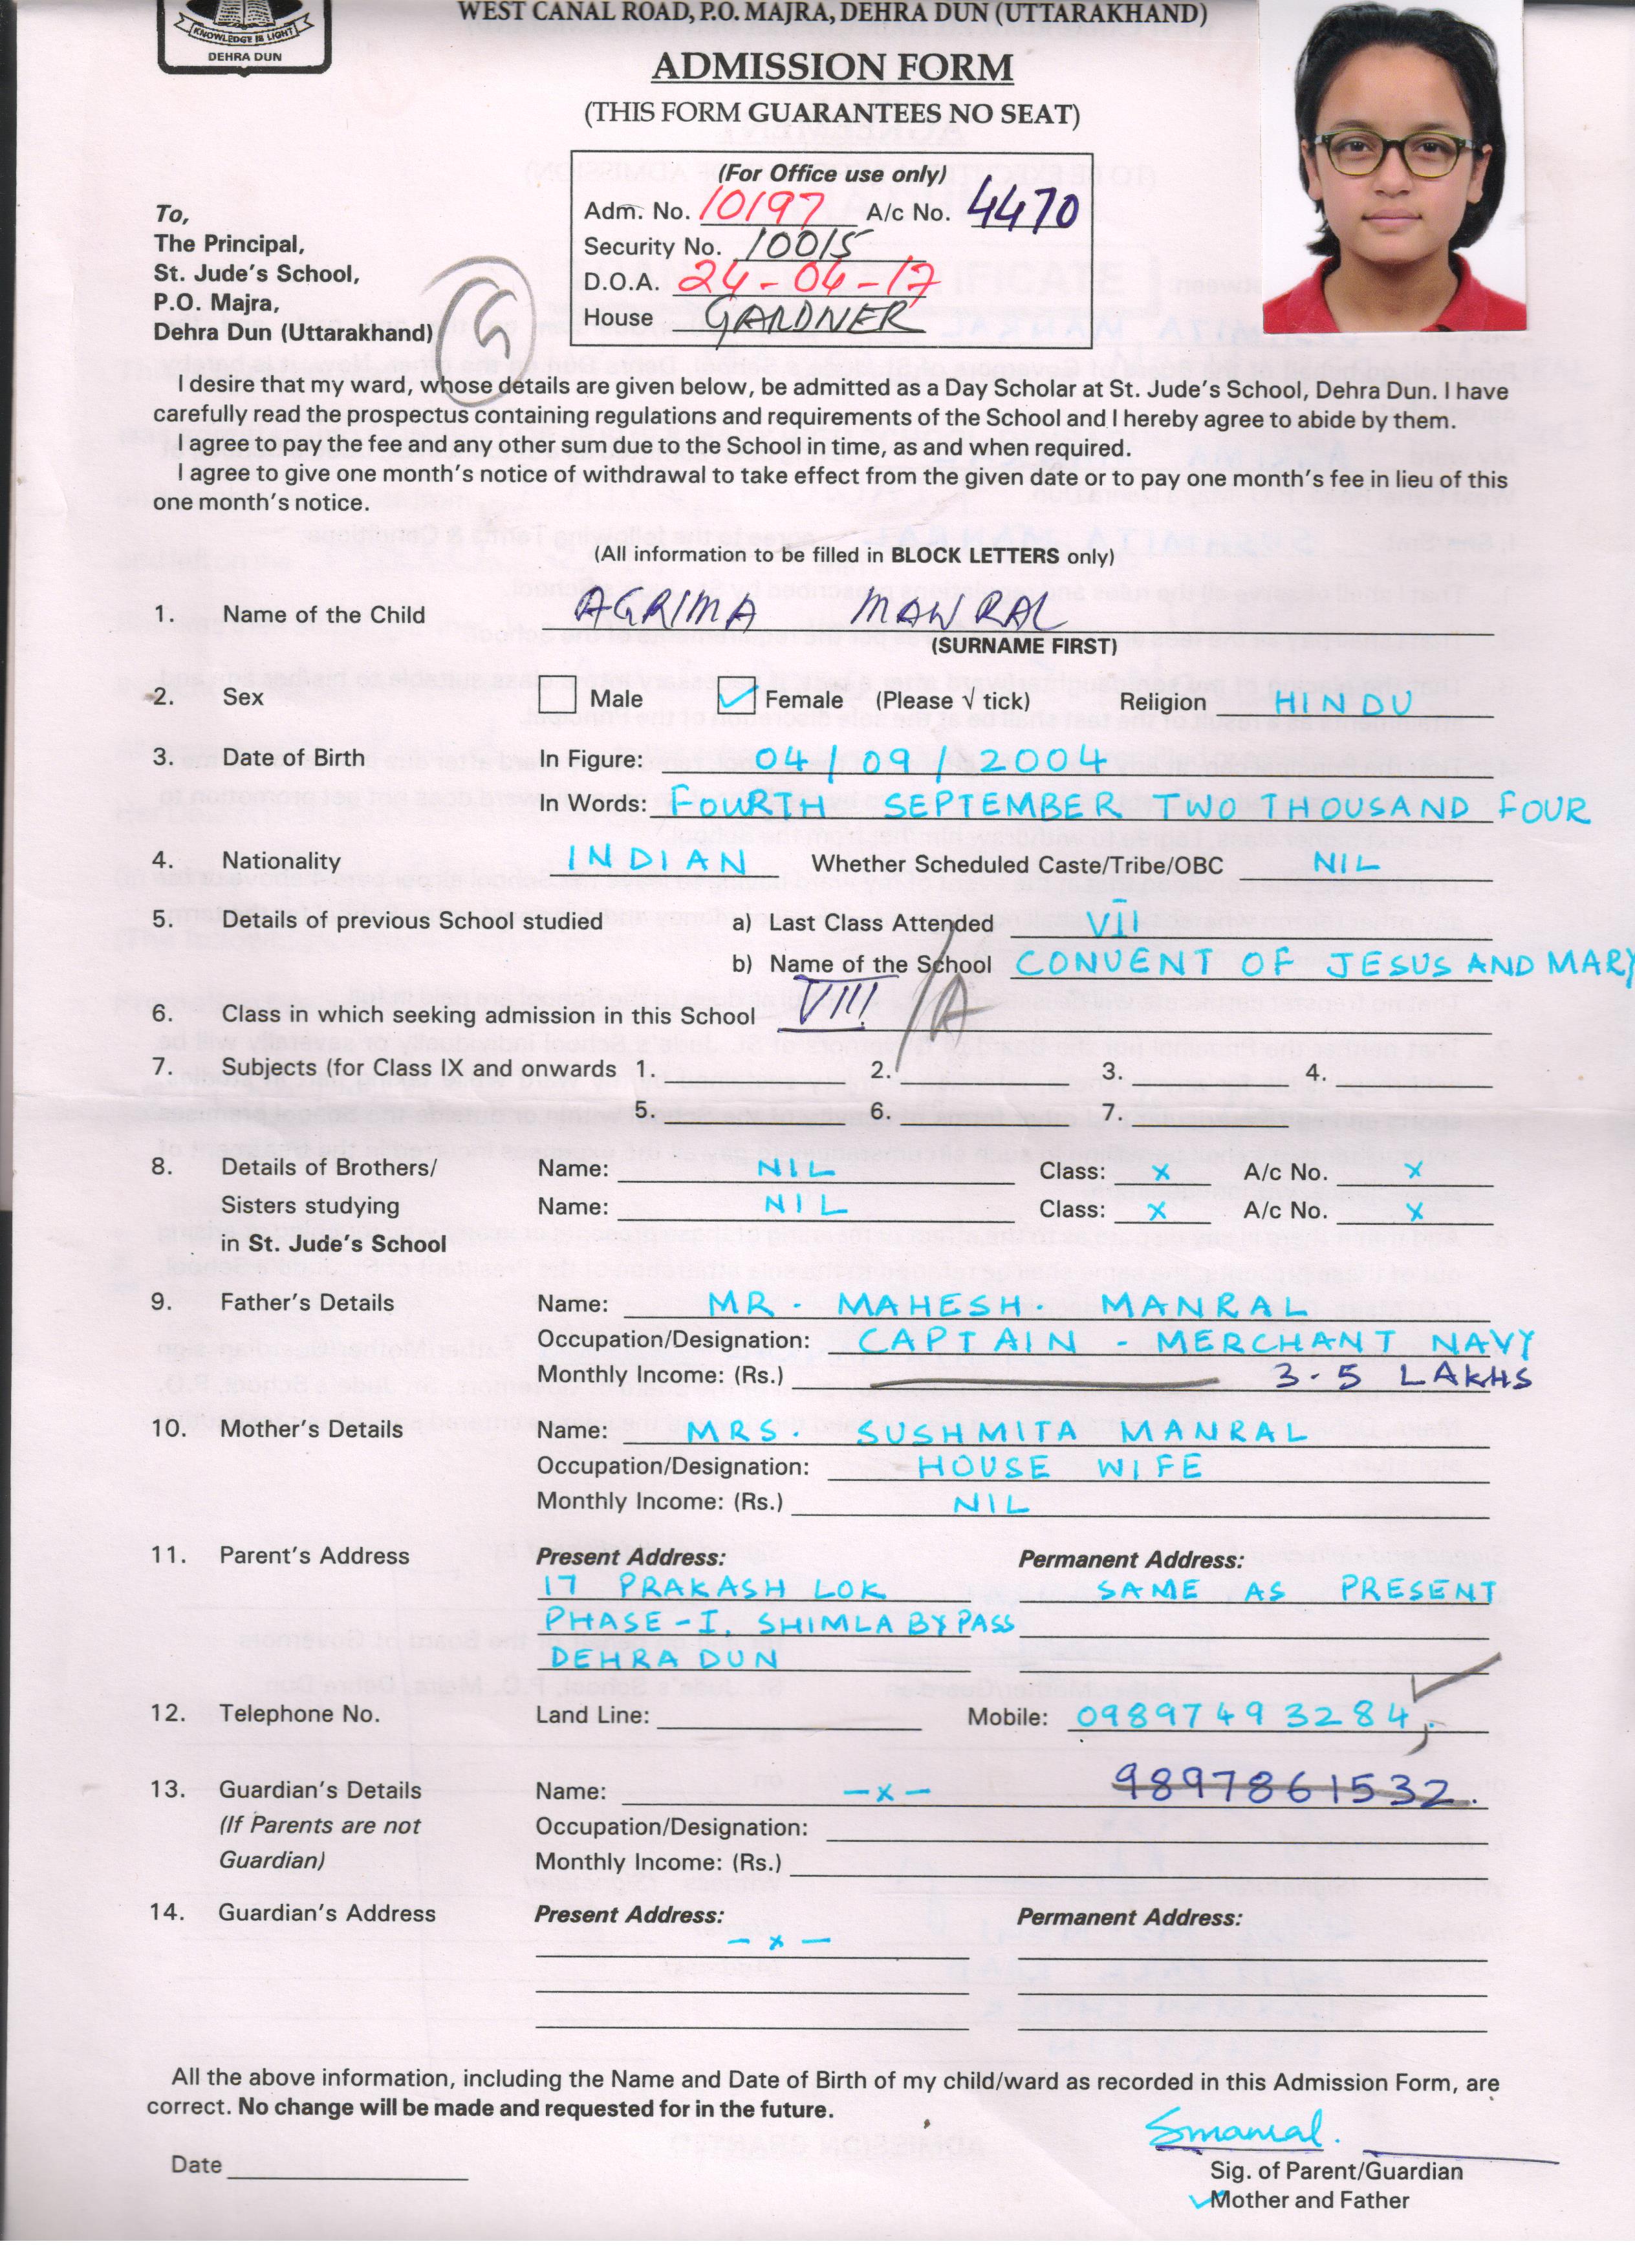 KNOWLEDGE IS LIGHT
DEHRA DUN
WEST CANAL ROAD, P.O. MAJRA, DEHRA DUN (UTTARAKHAND)
ADMISSION FORM
(THIS FORM GUARANTEES NO SEAT)
(For Office use only)
Adm. No. 10197 A/c No. 4470
Security No. 10015
D.O.A. 24-04-17
House GARDNER
To,
The Principal,
St. Jude's School,
P.O. Majra,
Dehra Dun (Uttarakhand)
G
I desire that my ward, whose details are given below, be admitted as a Day Scholar at St. Jude's School, Dehra Dun. I have
carefully read the prospectus containing regulations and requirements of the School and I hereby agree to abide by them.
I agree to pay the fee and any other sum due to the School in time, as and when required.
I agree to give one month's notice of withdrawal to take effect from the given date or to pay one month's fee in lieu of this
one month's notice.
(All information to be filled in BLOCK LETTERS only)
1. Name of the Child AGRIMA MANRAL
(SURNAME FIRST)
2. Sex Male Female (Please √ tick) Religion HINDU
3. Date of Birth In Figure: 04/09/2004
In Words: FOURTH SEPTEMBER TWO THOUSAND FOUR
4. Nationality INDIAN Whether Scheduled Caste/Tribe/OBC NIL
5. Details of previous School studied a) Last Class Attended VII
b) Name of the School CONVENT OF JESUS AND MARY
6. Class in which seeking admission in this School VIII /A
7. Subjects (for Class IX and onwards 1. 2. 3. 4.
5. 6. 7.
8. Details of Brothers/ Name: NIL Class: x A/c No. x
Sisters studying Name: NIL Class: x A/c No. x
in St. Jude's School
9. Father's Details Name: MR. MAHESH. MANRAL
Occupation/Designation: CAPTAIN - MERCHANT NAVY
Monthly Income: (Rs.) 3.5 LAKHS
10. Mother's Details Name: MRS. SUSHMITA MANRAL
Occupation/Designation: HOUSE WIFE
Monthly Income: (Rs.) NIL
11. Parent's Address Present Address: Permanent Address:
17 PRAKASH LOK SAME AS PRESENT
PHASE-I, SHIMLA BY PASS
DEHRA DUN
12. Telephone No. Land Line: Mobile: 09897493284,
13. Guardian's Details Name: -x- 9897861532.
(If Parents are not Occupation/Designation:
Guardian) Monthly Income: (Rs.)
14. Guardian's Address Present Address: Permanent Address:
-x-
All the above information, including the Name and Date of Birth of my child/ward as recorded in this Admission Form, are
correct. No change will be made and requested for in the future.
Smanral.
Date
Sig. of Parent/Guardian
Mother and Father